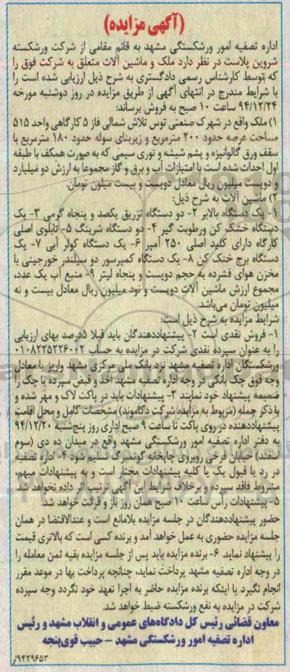 (آگهی مزایده)
اداره تصفیه امور ورشکستگی مشهد به قائم مقامی از شرکت ورشکسته
شروین پلاست در نظر دارد ملک و ماشین آلات متعلق به شرکت فوق را
که توسط کارشناس رسمی دادگستری به شرح ذیل ارزیابی شده است را
با شرایط مندرج در انتهای آگهی از طریق مزایده در روز دوشنبه مورخه
۹۴/۱۲/۲۴ ساعت ۱۰ صبح به فروش برساند:
۱) ملک واقع در شهرک صنعتی توس تلاش شمالی فاز ۵ کارگاهی واحد ۵۱۵
مساحت عرصه حدود ۲۰۰ مترمربع و زیربنای سوله حدود ۱۸۰ مترمربع با
سقف ورق گالوانیزه و پشم شیشه و توری سیمی که به صورت همکف با طبقه
اول احداث شده است با امتیازات آب و برق و گاز مجموعا به ارزش دو میلیارد
و دویست میلیون ریال معادل دویست و بیست میلیون تومان.
۲) ماشین آلات به شرح ذیل:
۱- یک دستگاه بالابر ۲- دو دستگاه تزریق یکصد و پنجاه گرمی ۳- یک
دستگاه خشک کن ورطوبت گیر ۴- دو دستگاه شرینگ ۵- تابلوی اصلی
کارگاه دارای کلید اصلی ۲۵۰ آمپر ۶- یک دستگاه کولر آبی ۷- یک
دستگاه برج خنک کن ۸- یک دستگاه کمپرسور دو سیلندر خورجینی با
مخزن هوای فشرده به حجم دویست و پنجاه لیتر ۹- منبع آب یک عدد،
مجموع ارزش ماشین آلات دویست و نود میلیون ریال معادل بیست و نه
میلیون تومان می‌باشد.
شرایط مزایده به شرح ذیل است:
۱- فروش نقدی است ۲- پیشنهاددهندگان باید قبلا ۵درصد بهای ارزیابی
را به عنوان سپرده نقدی شرکت در مزایده به حساب
ورشکستگان اداره تصفیه مشهد نزد بانک ملی مرکزی مشهد واریز یا معادل
وجه فوق چک بانکی در وجه اداره تصفیه مشهد اخذ و فیش سپرده یا چک را
ضمیمه پیشنهاد خود نمایند ۳- پیشنهادات باید در پاکت لاک و مهر شده و
با ذکر جمله (مربوط به مزایده شرکت ) مشخصات کامل و محل اقامت
پیشنهاددهنده در روی پاکت تا ساعت ۹ صبح اداری روز پنج‌شنبه ۹۴/۱۲/۲۰
به دفتر اداره تصفیه امور ورشکستگی مشهد واقع در میدان ده دی (سوم
اسفند) خیابان فرخی روبروی چاپخانه گوتمبرگ تسلیم شود ۴- اداره تصفیه
در رد یا قبول یک یا کلیه پیشنهادات مختار است و به پیشنهادات مبهم،
مشروط فاقد سپرده و برخلاف شرایط این آگهی ترتیب اثر داده نخواهد شد.
۵- پیشنهادات رأس ساعت ۱۰ صبح همان روز باز و قرائت خواهد شد.
حضور پیشنهاددهندگان در جلسه مزایده بلامانع است و عنداالاقتضا در همان
جلسه مزایده حضوری به عمل خواهد آمد و برنده کسی است که بالاتری قیمت
را پیشنهاد نماید ۶- برنده مزایده باید پس از جلسه مزایده بقیه ثمن معامله را
در وجه اداره تصفیه مشهد پرداخت نماید، چنانچه پرداخت بها در موعد مقرر
انجام نگیرد یا اینکه برنده مزایده حاضر به اجرا تعهد خود نگردد وجه سپرده
شرکت در مزایده به نفع ورشکسته ضبط خواهد شد.
معاون قضائی رئیس کل دادگاه‌های عمومی و انقلاب مشهد و رئیس
اداره تصفیه امور ورشکستگی مشهد - حبیب قوی‌پنجه
۹۴۲۹۶۵۳/ر